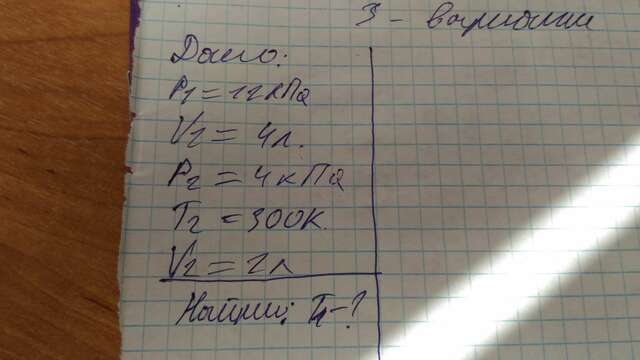 3 - вариант
Дано:
P1 = 12кПа
V2 = 4л.
P2 = 4кПа
T2 = 300К.
V2 = 2л
Найти: T1 - ?